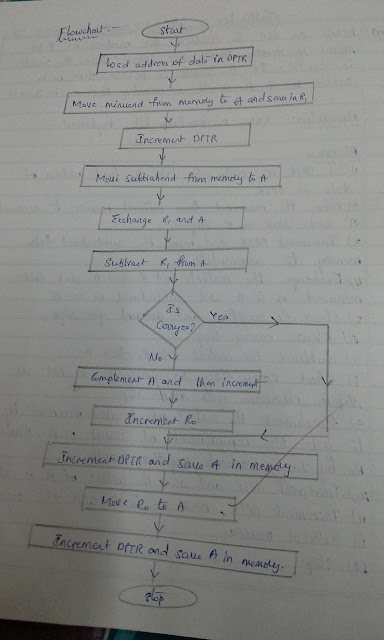 Flowchart:-
Start
Load address of data in DPTR
Move minuend from memory to A and save in R1
Increment DPTR
Move subtrahend from memory to A
Exchange R1 and A
Subtract R1 from A
Is
Carry=0?
Yes
No
Complement A and then increment
Increment R0
Increment DPTR and save A in memory.
Move R0 to A
Increment DPTR and save A in memory.
Stop